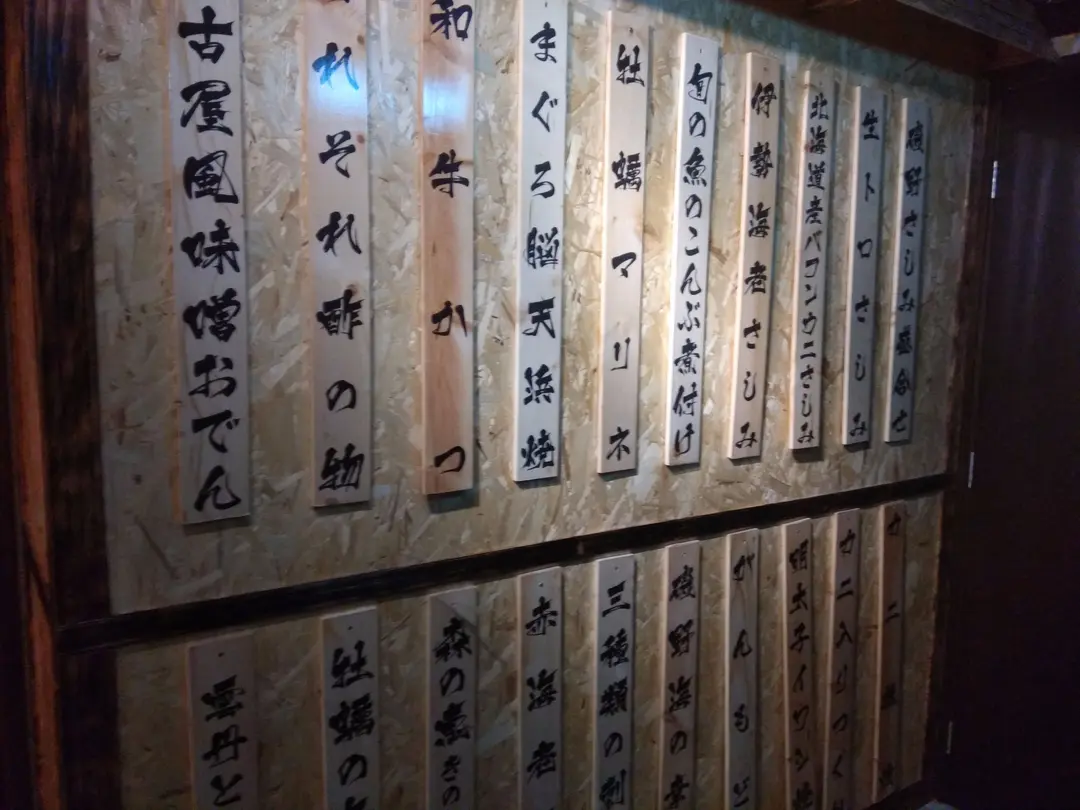 磯野さしみ盛合せ
生トロさしみ
北海道産バフンウニさしみ
伊勢海老さしみ
旬の魚のこんぶ煮付け
牡蠣マリネ
まぐろ脳天浜焼
和牛かつ
れそれ酢の物
古屋風味噌おでん
カニ
カニ入りつく
明太子イワシ
がんもど
磯野海の幸
三種類の刺
赤海老
森の煮きの
牡蠣の
雲丹と